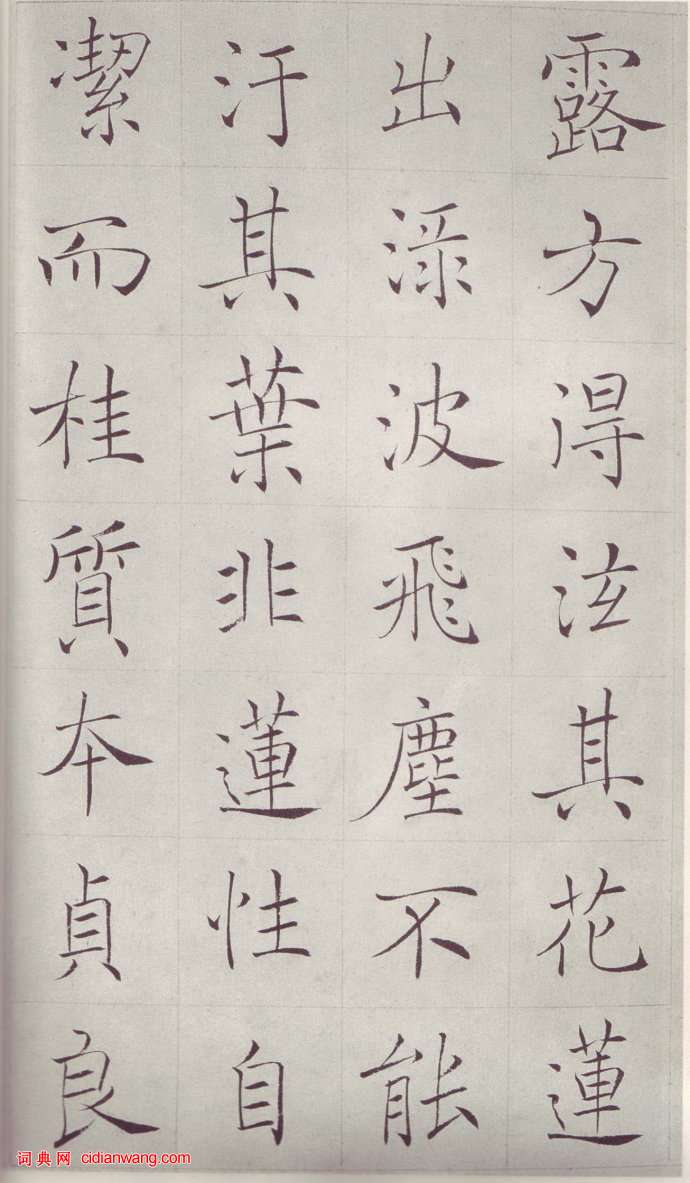 露方得泫其花蓮
出淥波飛塵不能
汙其葉非蓮性自
潔而桂質本貞良
词典网 cidianwang.com